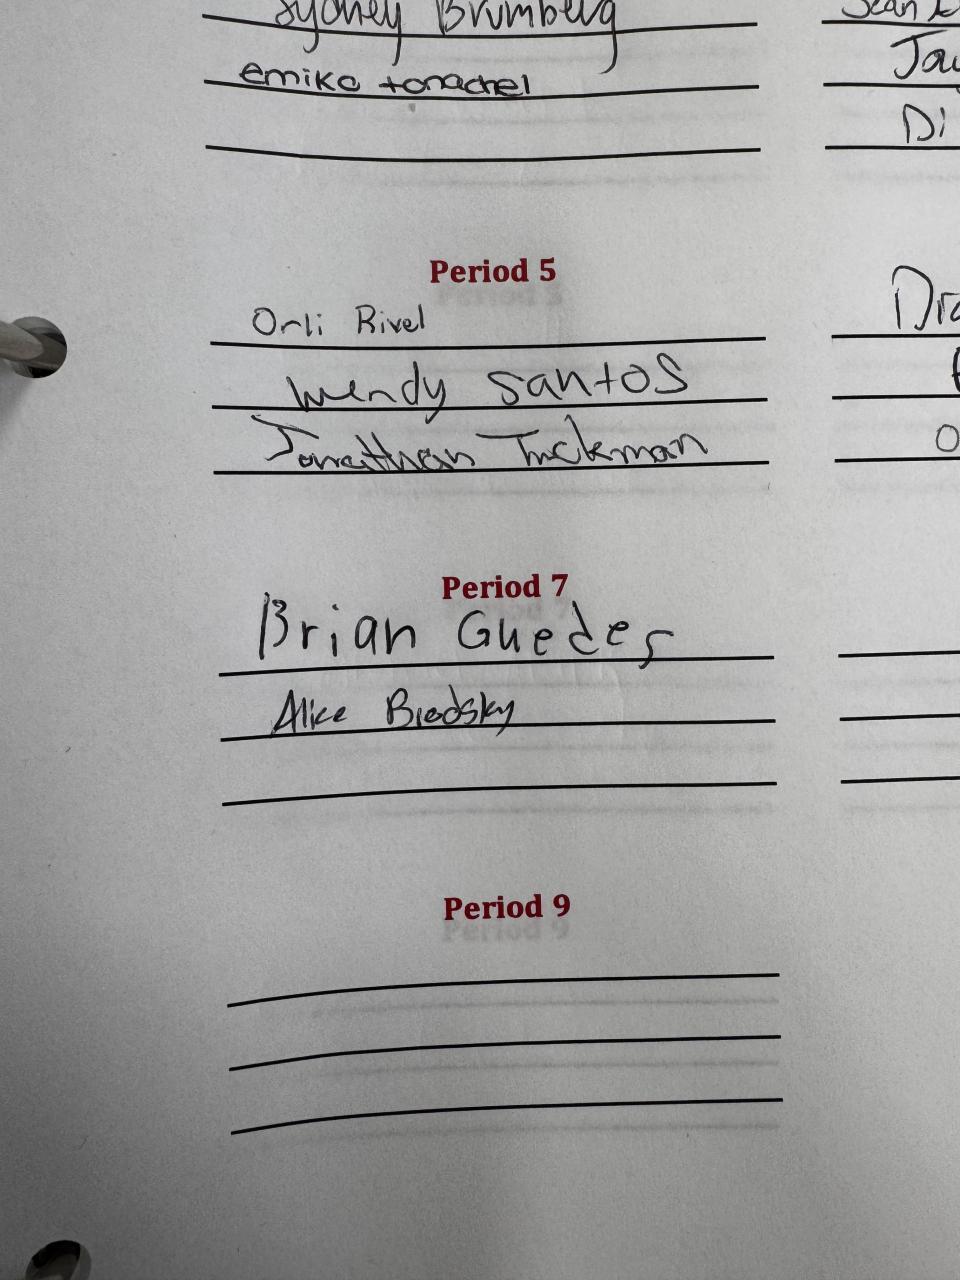 Sydney Brumberg
emiko tonachel
Period 5
Orli Rivel
Wendy Santos
Jonathan Tuckman
Period 7
Brian Guedes
Alice Brodsky
Period 9
Sean
Di